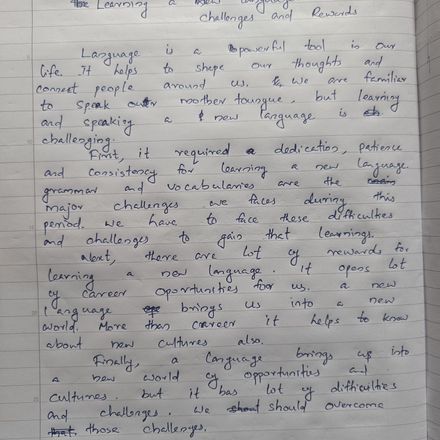 Learning a New Language
challenges and Rewards
Language is a powerful tool in our
life. It helps to shepe our thoughts and
connect people around us. we are familiar
to speak our mother toungue, but learning
and speaking a new language is
challenging.
First, it required dedication, patience
and consistency for learning a new language.
grammar and vocabularies are the
major challenges we faces during this
period. we have to face these difficulties
and challenges to gain that learnings.
Next, there are lot of rewards for
learning a new language. It opens lot
of career oportunities for us. a new
language brings us into a new
world. More than career it helps to know
about new cultures also.
Finally, a language brings us into
a new world of opportunities and
cultures. but it has lot of difficulties
and challenges. we should overcome
those challenges.